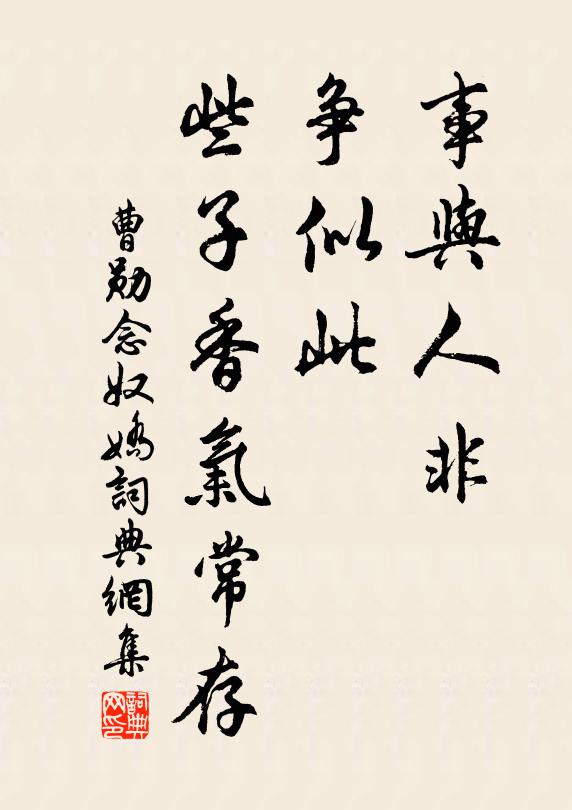 事與人非
争似此
些子香氣常存
曹勛念奴嬌詞典網集
詞典網印